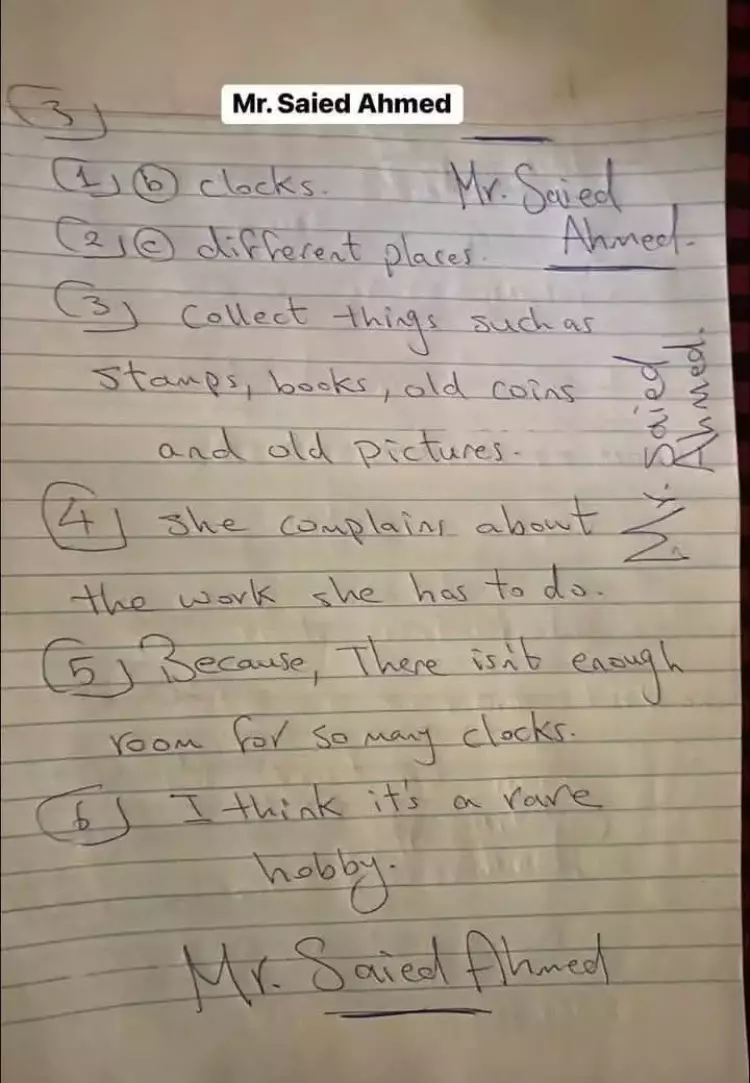 Mr. Saied Ahmed
(3)
(1) (b) clocks. Mr. Saied
(2) (c) different places. Ahmed.
(3) collect things such as
stamps, books, old coins
and old pictures.
Mr. Saied
Ahmed.
(4) she complains about
the work she has to do.
(5) Because, There isn't enough
room for so many clocks.
(6) I think it's a rare
hobby.
Mr. Saied Ahmed